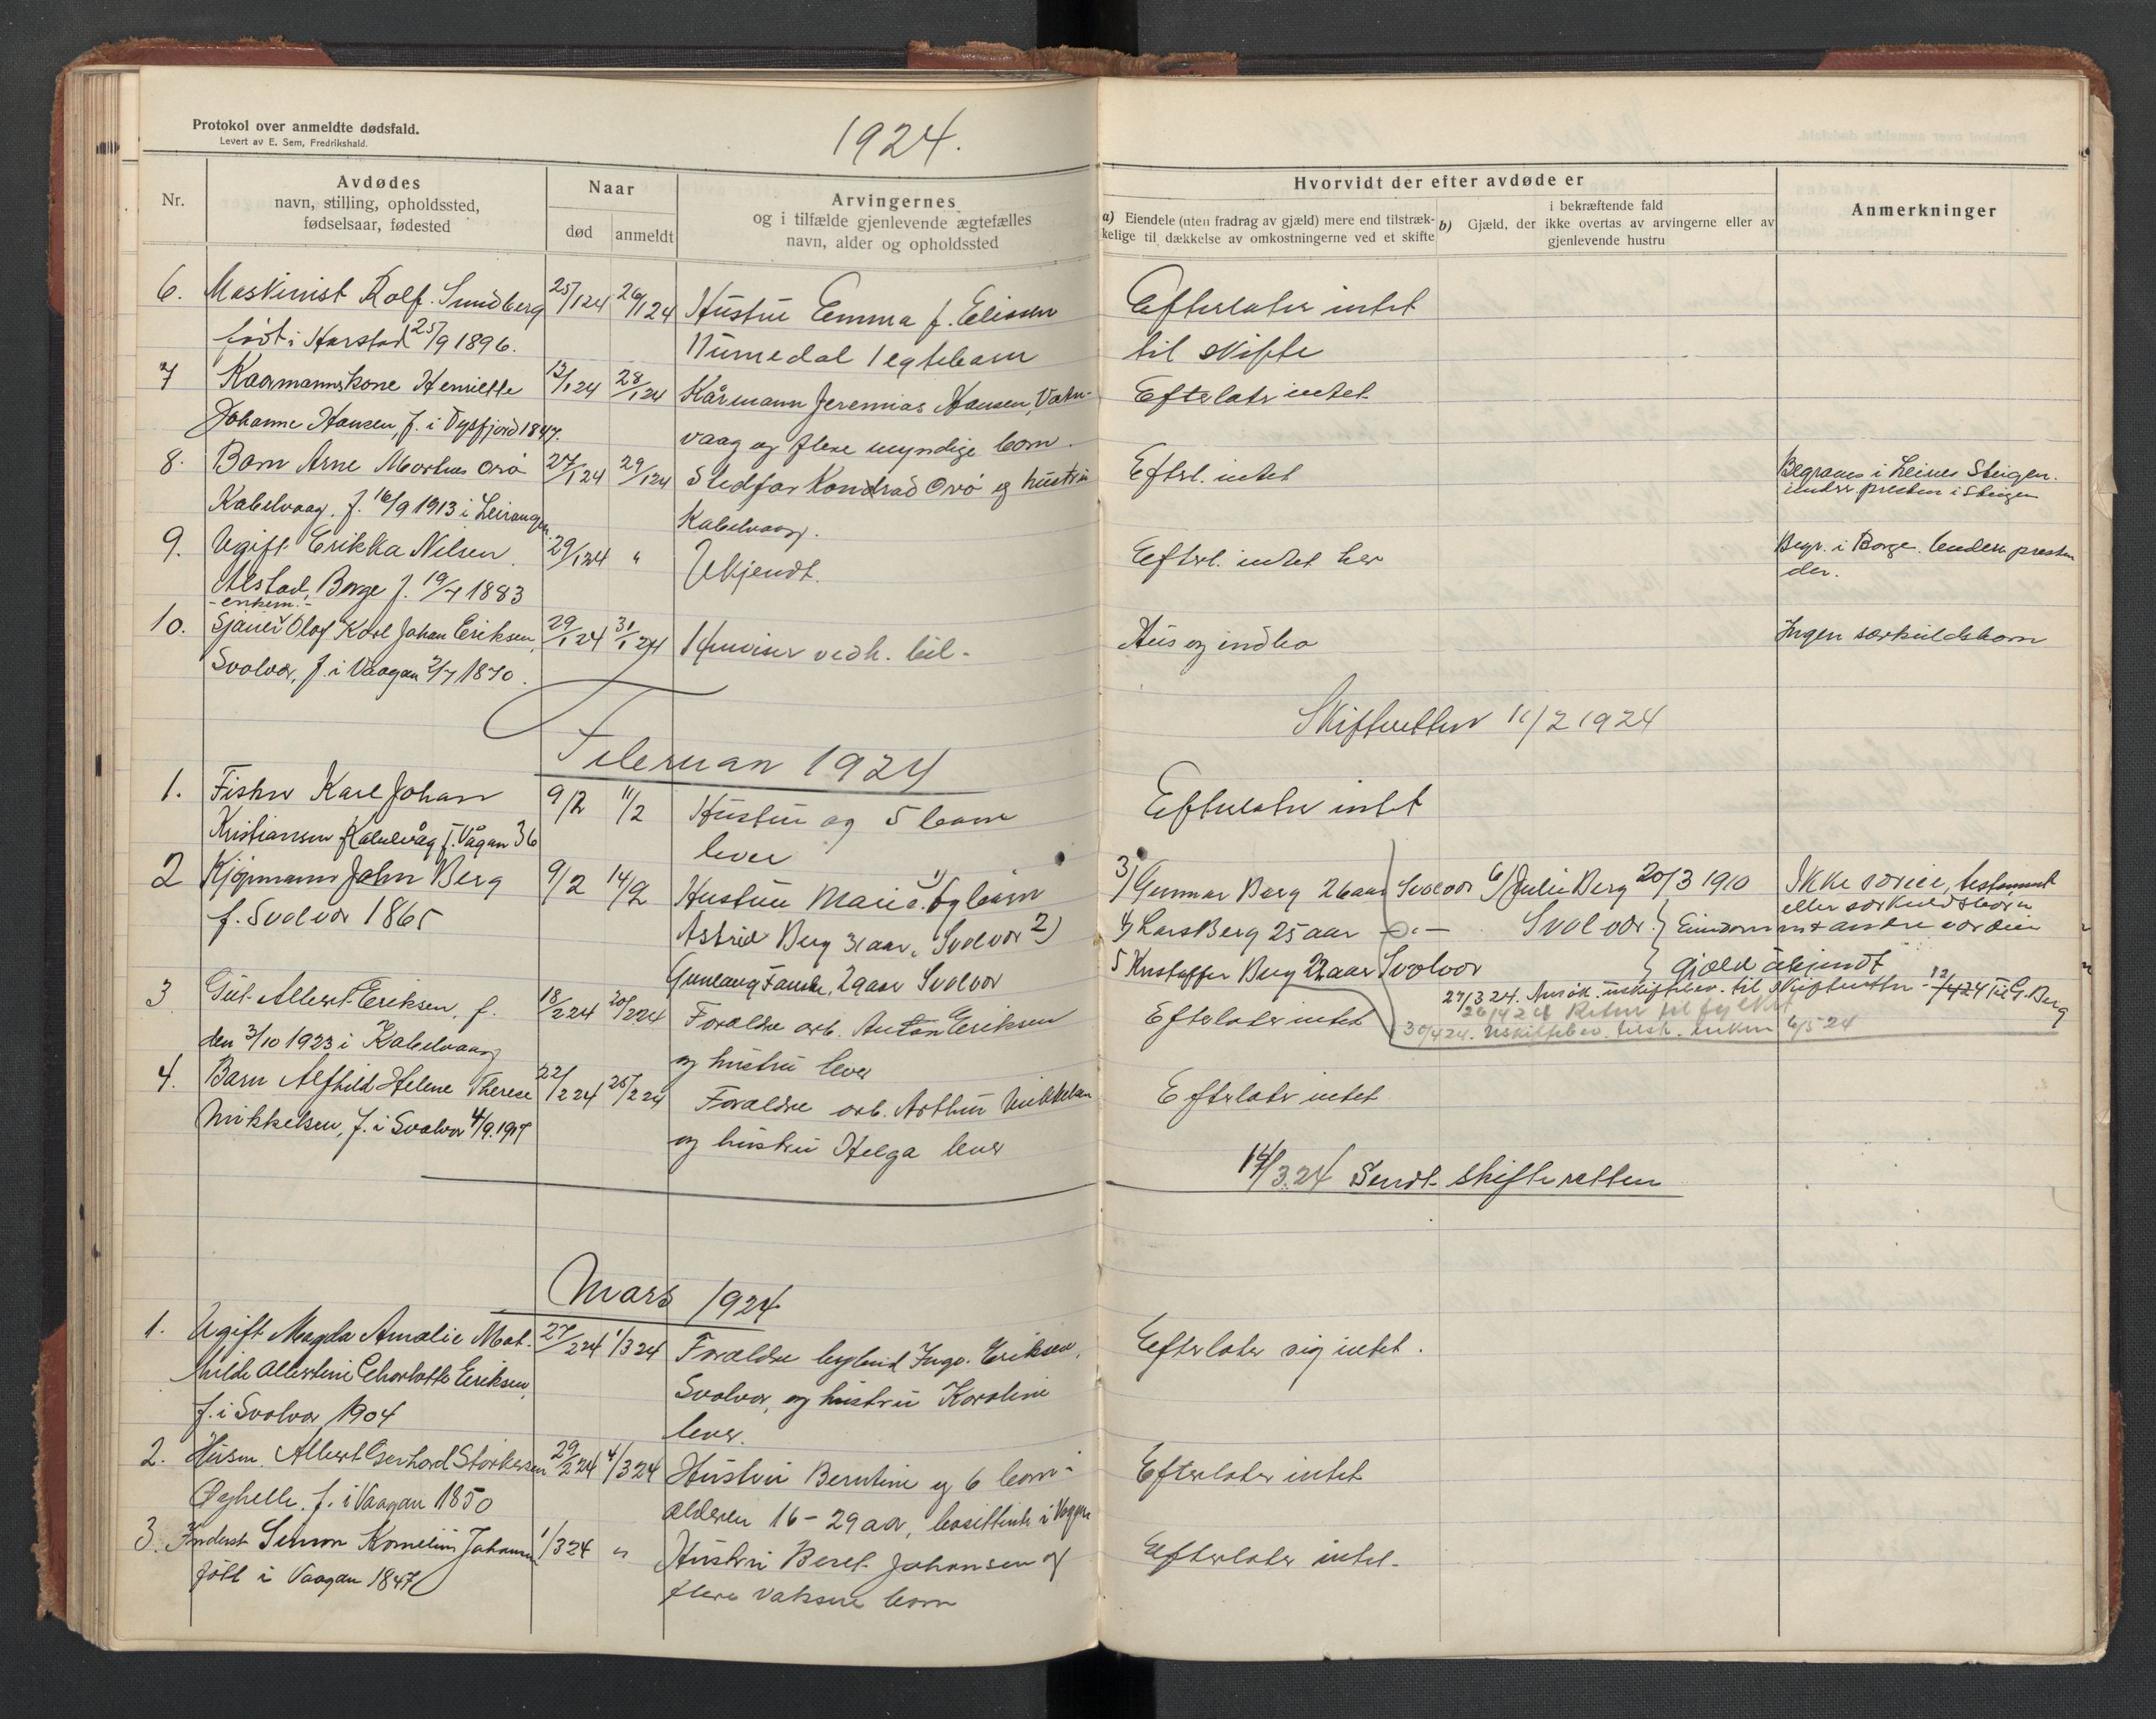 Protokol over anmeldte dødsfald.
Levert av E. Sem, Fredrikshald.
1924.
Nr.
Avdødes
navn, stilling, opholdssted,
fødselsaar, fødested
Naar
død
anmeldt
Arvingernes
og i tilfælde gjenlevende ægtefælles
navn, alder og opholdssted
Hvorvidt der efter avdøde er
a) Eiendele (uten fradrag av gjæld) mere end tilstræk-
kelige til dækkelse av omkostningerne ved et skifte
i bekræftende fald
b) Gjæld, der ikke overtas av arvingerne eller av
gjenlevende hustru
Anmerkninger
6. Maskinist Rolf Sundberg 25/1 24 26/1 24 Hustru Emma f. Elissen Efterlater intet
født i Harstad 25/9 1896. 1 egtebarn til skifte
7 Kaarmannskone Henriette 12/1 24 28/1 24 Kårmann Jeremias Hansen, Vatn- Efterlatr intet
Johanne Hansen, f. i Tysfjord 1847. vaag og flere myndige born.
8. Barn Arne Mortnes Orö 27/1 24 29/1 24 Stedfar Kondrad Orö og hustru Efterl. intet Begraves i Leines Steigen.
Kabelvaag, f. 16/9 1913 i Leirangen Kabelvaag. presten i Steigen
9. Ugift Erikka Nilsen 29/1 24 " Ukjendt. Efterl. intet her Begr. i Borge. presten
Alstad, Borge f. 19/4 1883 der.
- enkem. -
10. Sjauer Olaf Karl Johan Eriksen, 29/1 24 31/1 24 Hus og indbo Ingen særkuldsborn
Svolvær, f. i Vaagan 2/7 1870.
Skifteretten 11/2 1924
Februar 1924
1. Fisker Karl Johan 9/2 11/2 Hustru og 5 barn Efterlater intet
Kristiansen Kabelvåg f. Vågan 36 lever
2 Kjøpmann John Berg 9/2 14/2 Hustru Marie og barn 1) 3) Gunnar Berg 26 aar Svolvær 6) Julie Berg 20/3 1910 Ikke verge, testament
f. Svolvær 1865 Astrid Berg 31 aar, Svolvær 2) 4) Lars Berg 25 aar -"- Svolvær } Eiendom m andre værdier
eller særkuldsbørn
Gunlaug Fauske, 29 aar Svolvær 5 Kristoffer Berg 22 aar Svolvær } Gjæld ukjendt
27/3 24. Ansøk. uskiftebev. til Skifteretten 12/4 24 Til G. Berg
26/4 24 Retur til fylket
30/4 24. Uskiftebev. tilst. enken 6/5 24
3 Gut Albert Eriksen, f. 18/2 24 20/2 24 Foræld­re arb. Anton Eriksen Efterlater intet
den 3/10 1923 i Kabelvaag og hustru lever
4. Barn Alfhild Helene Therese 22/2 24 25/2 24 Forældre arb. Arthur Mikkelsen Efterlatr intet
Mikkelsen, f. i Svolvær 4/9. 1917 og hustru Helga lever
14/3. 24 Sendt skifteretten
Mars 1924
1. Ugift Magda Amalie Mat- 27/2 24 1/3 24 Forældre Ingv. Eriksen, Efterlater sig intet.
hilde Albertine Charlotte Eriksen, Svolvær, og hustru Karoline
f. i Svolvær 1904 lever.
2. Husm. Albert Gerhard Storkersen 29/2 24 4/3 24 Hustru Berntine og 6 born i Efterlater intet
Øyhelle. f. i Vaagan 1850 alderen 16 - 29 aar, bosittende i Vågan
3. Inderst Simon Kornelius Johansen 1/3 24 " Hustru Beret Johansen og Efterlater intet.
født i Vaagan 1847 flere vaksne born